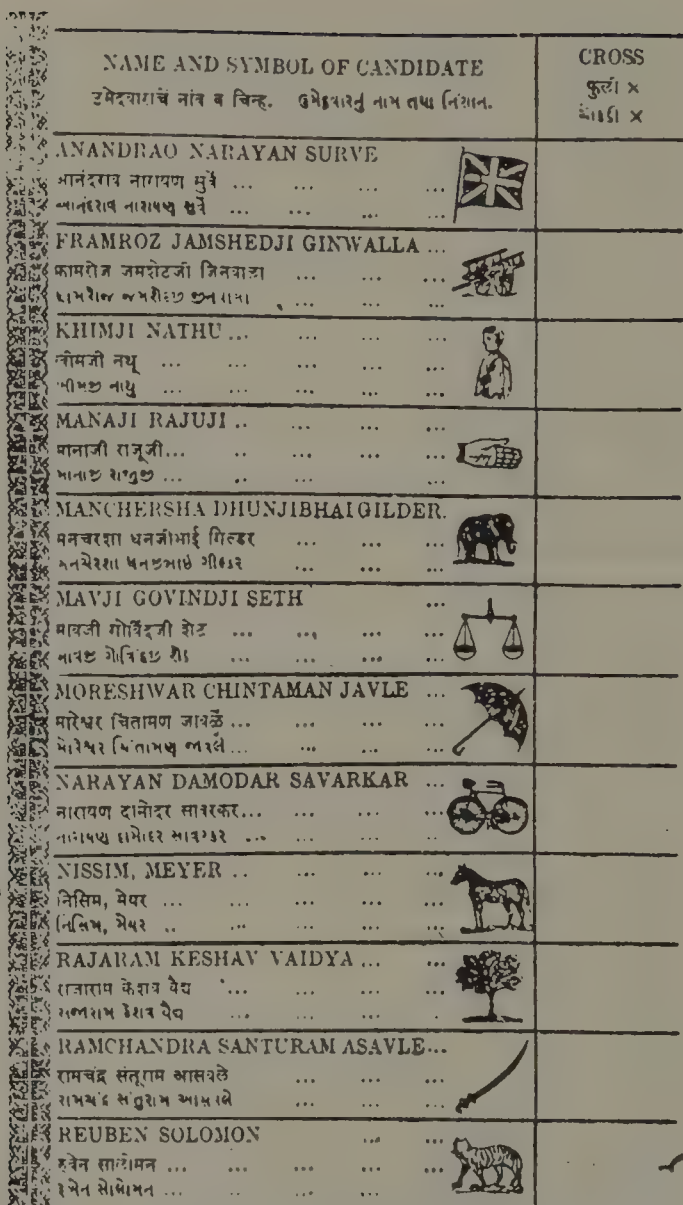 NAME AND SYMBOL OF CANDIDATE
उमेदवाराचें नांव व चिन्ह. ઉમેદવારનું નામ તથા નિશાન.
CROSS
फुली ×
ચોકડી ×
ANANDRAO NARAYAN SURVE
आनंदराव नारायण सुर्वे ... ... ... ...
આનંદરાવ નારાયણ સુર્વે ... ... ... ...
FRAMROZ JAMSHEDJI GINWALLA ...
फ्रामरोज जमशेटजी जिनवाला ... ... ...
... ... ...
KHIMJI NATHU ... ... ... ...
खीमजी नथू ... ... ... ...
ખીમજી નાથુ ... ... ... ...
MANAJI RAJUJI .. ... ... ...
मानाजी राजूजी... .. ... ...
માનાજી રાજુજી ... .. ... ...
MANCHERSHA DHUNJIBHAI GILDER.
मनचरशा धनजीभाई गिल्डर ... ... ...
મનચેરશા ધનજીભાઈ ગીલ્ડર ... ... ...
MAVJI GOVINDJI SETH ...
मावजी गोविंदजी शेट ... ... ... ...
માવજી ગોવિંદજી શેઠ ... ... ... ...
MORESHWAR CHINTAMAN JAVLE ...
मोरेश्वर चिंतामण जावळे ... ... ... ...
મોરેશ્વર ચિંતામણ જાવલે ... ... ... ...
NARAYAN DAMODAR SAVARKAR ...
नारायण दामोदर सावरकर... ... ... ...
નારાયણ દામોદર સાવરકર ... ... ... ..
NISSIM, MEYER .. ... ... ...
निसिम, मेयर ... ... ... ...
નિસિમ, મેયર .. ... ... ...
RAJARAM KESHAV VAIDYA ... ...
राजाराम केशव वैद्य ... ... ... ...
રાજારામ કેશવ વૈદ્ય ... ... ... .
RAMCHANDRA SANTURAM ASAVLE...
रामचंद्र संतूराम आसवले ... ... ...
રામચંદ્ર સંતુરામ આસવલે ... ... ...
REUBEN SOLOMON ... ...
रुबेन सालोमन ... ... ... ... ...
રુબેન સોલોમન ... .. ... ...